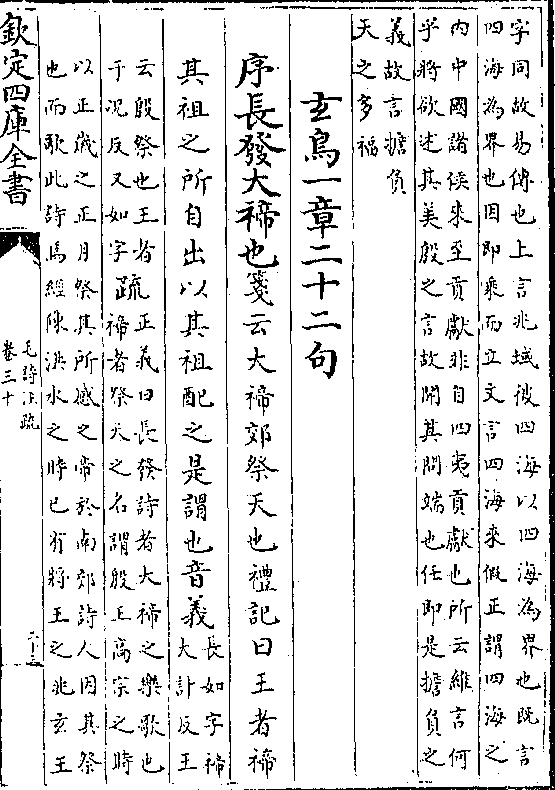 字同故易傳也上言兆域彼四海以四海為界也既言
四海為界也因即乘而立文言四海來假正謂四海之
内中國諸侯來至貢獻非自四夷貢獻也所云維言何
乎將欲述其美殷之言故開其問端也任即是擔負之
義故言擔負
天之多福
𤣥鳥一章二十二句
序長發大禘也箋云大禘郊祭天也禮記曰王者禘
其祖之所自出以其祖配之是謂也音義長如字禘
大計反王
云殷祭也王者
于況反又如字疏正義曰長發詩者大禘之樂歌也
禘者祭天之名謂殷王高宗之時
以正歲之正月祭其所感之帝於南郊詩人因其祭
也而歌此詩焉經陳洪水之時已有將王之兆𤣥王
欽定四庫全書
毛詩注疏
卷三十